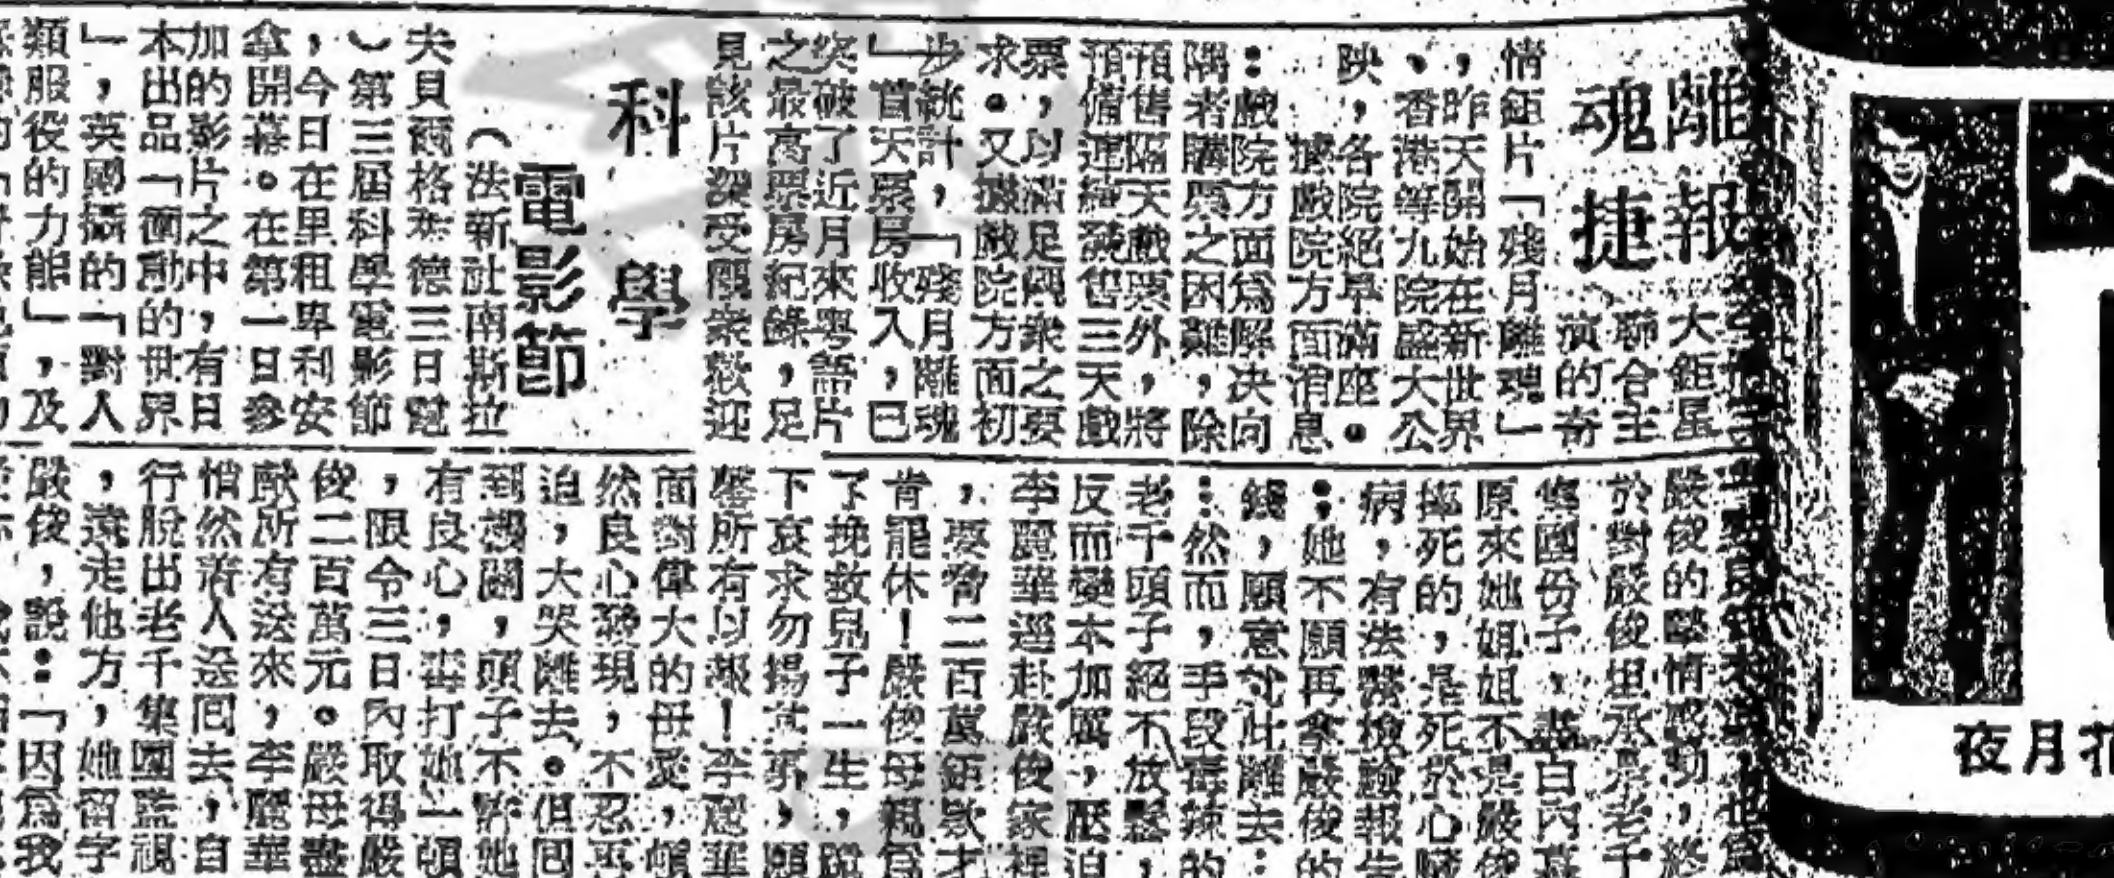 離報
魂捷
大鉅星
聯合主
演的奇
情鉅片「殘月離魂」
，昨天開始在新世界
、香港等九院盛大公
映，各院絕早滿座。
據戲院方面消息
：戲院方面爲解决向
隅者購票之困難，除
預售隔天戲票外，將
預備連續發售三天戲
票，以滿足觀衆之要
求。又據戲院方面初
步統計，「殘月離魂
」首天票房收入，已
突破了近月來粤語片
之最高票房紀錄，足
見該片深受觀衆歡迎
科學
電影節
（法新社南斯拉
夫貝爾格萊德三日電
）第三屆科學電影節
，今日在里租卑利安
拿開幕。在第一日參
加的影片之中，有日
本出品「衝動的世界
」，英國攝的「對人
類服役的力能」，及
嚴俊的癡情感動，終
於對嚴俊坦承是老千
集團份子，盡白內幕
原來她姐姐不是嚴俊
撞死的，是死於心臟
病，有法醫檢驗報告
；她不願再拿嚴俊的
錢，願意就此離去：
：然而，手段毒辣的
老千頭子絕不放鬆，
反而變本加厲，壓迫
李麗華逕赴嚴俊家裡
，要脅二百萬鉅欵才
肯罷休！嚴俊母親爲
了挽救兒子一生，跪
下哀求勿揚其事，願
罄所有以報！李麗華
面對偉大的母愛，頓
然良心發現，不忍再
迫，大哭離去。但回
到撈關，頭子不許她
有良心，毒打她一頓
，限令三日內取得嚴
俊二百萬元。嚴母盡
獻所有送來，李麗華
悄然着人送回去，自
行脫出老千集團監視
，遠走他方，她留字
嚴俊，說：「因爲我
夜月花